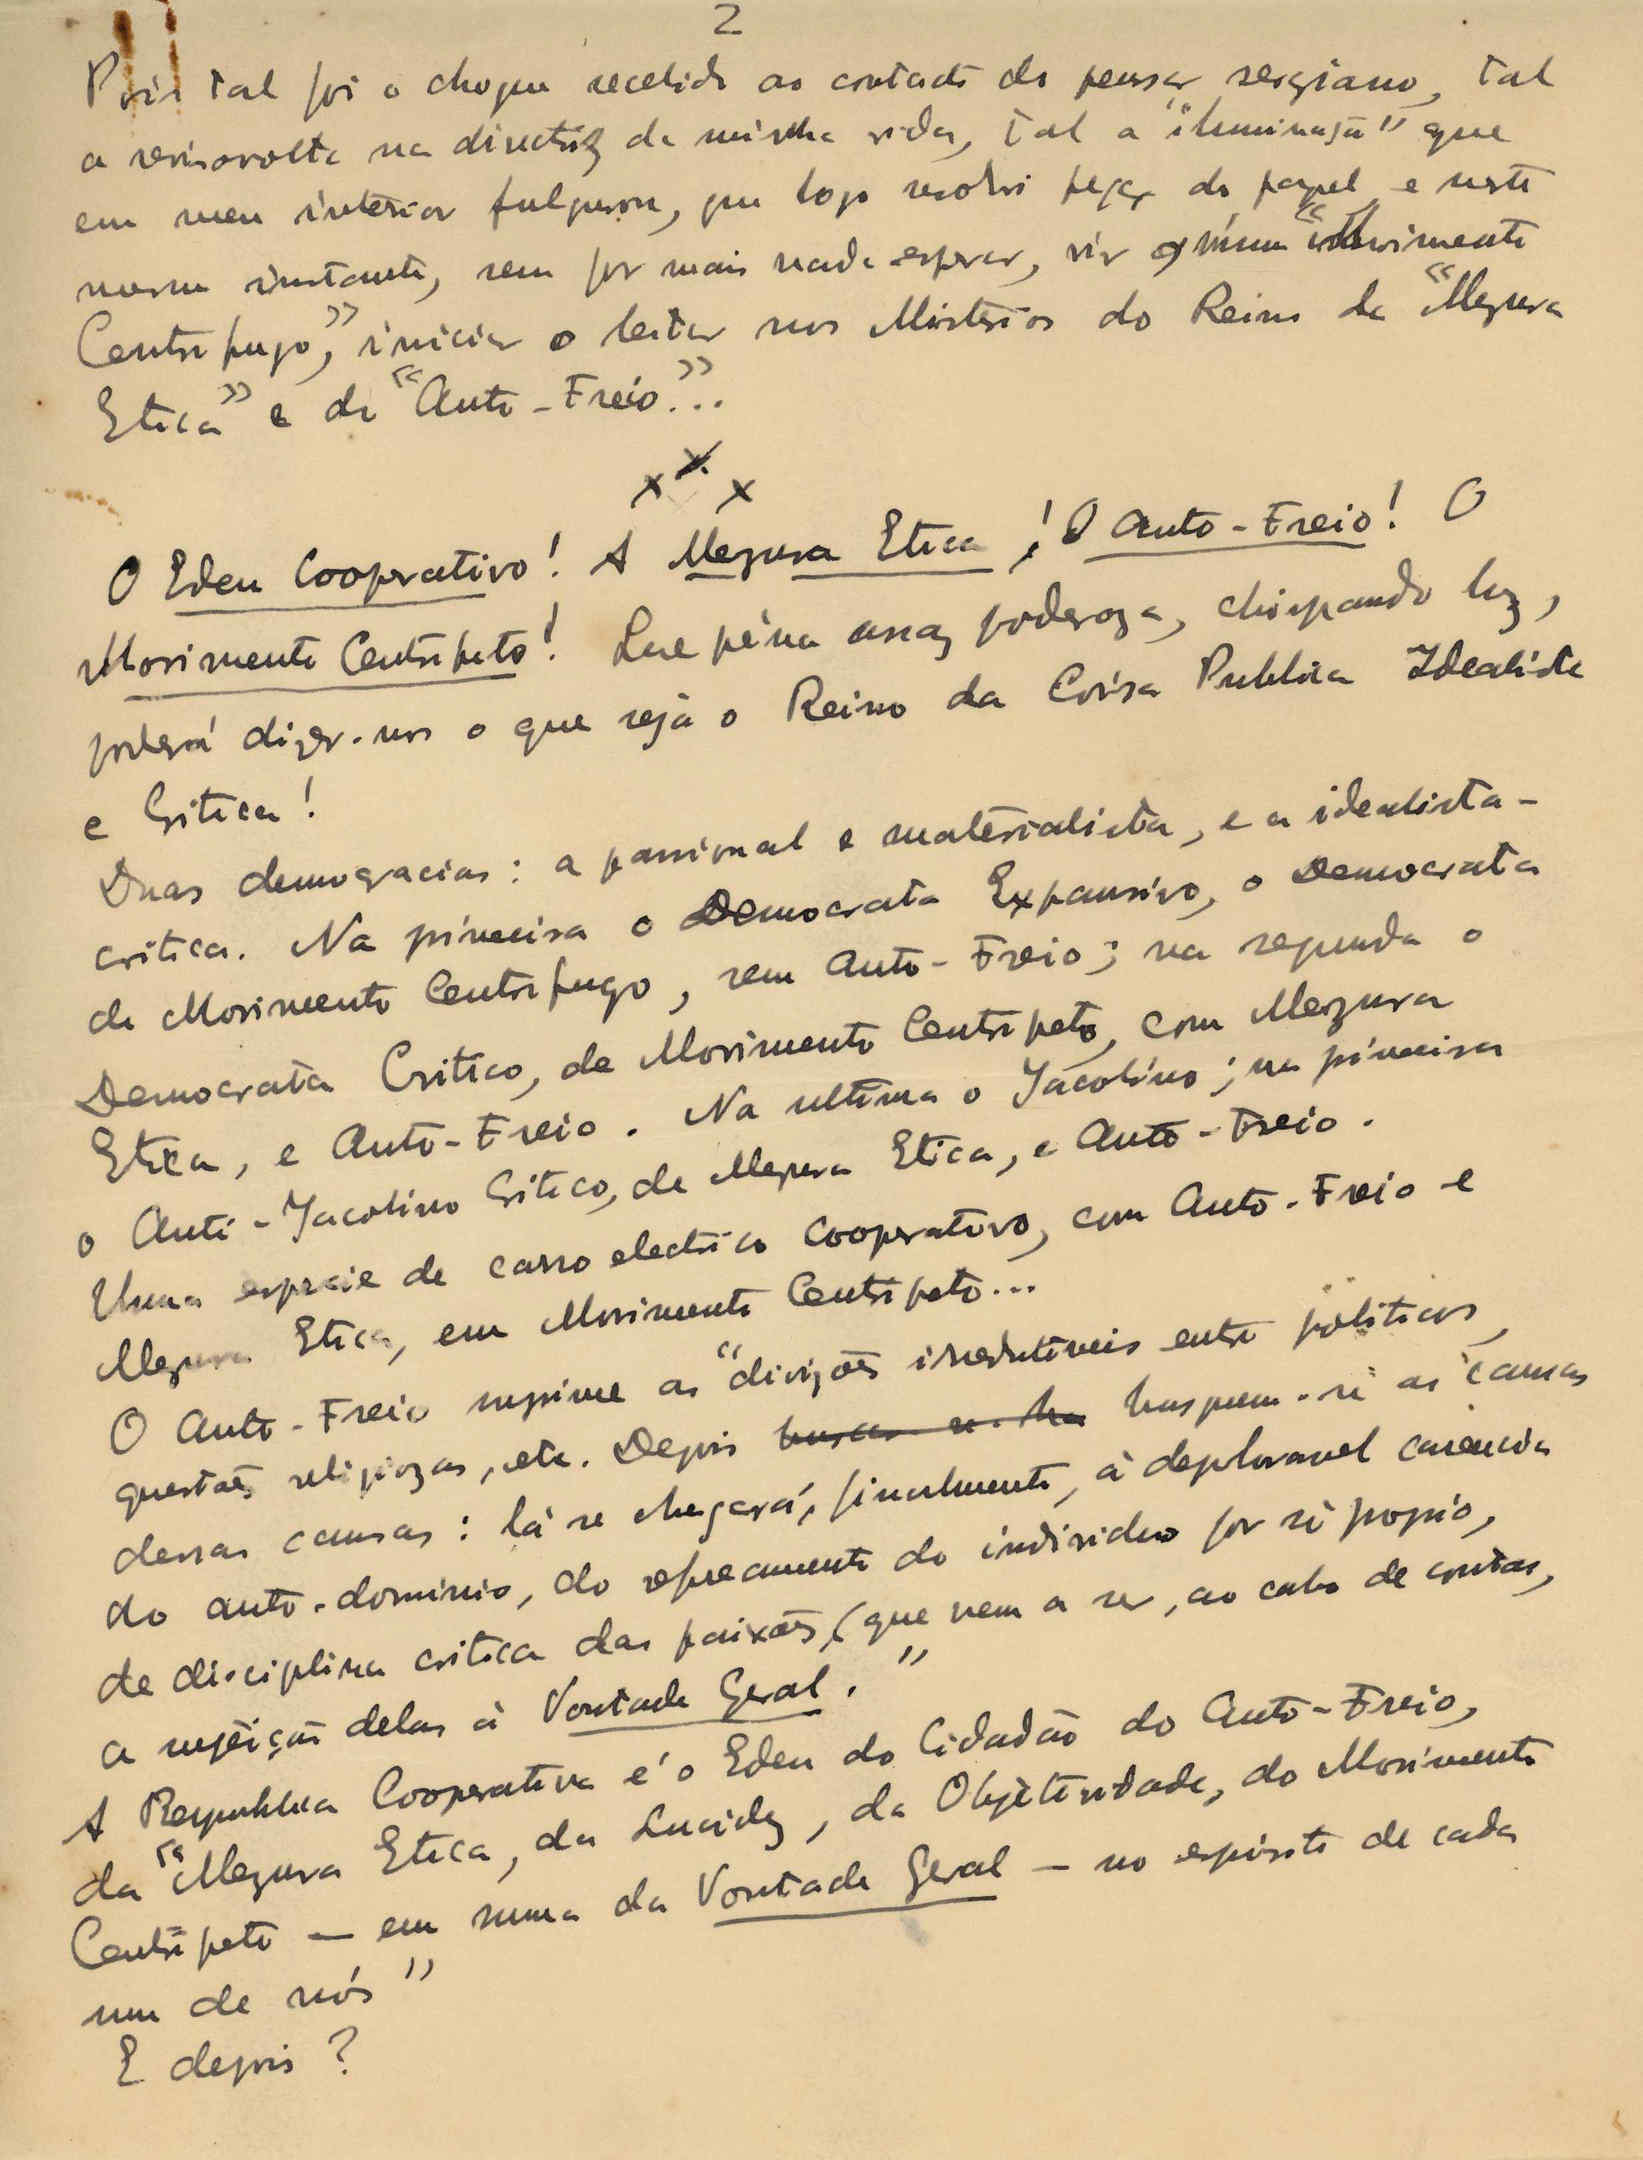 2
Pois tal foi o choque recebido ao contacto do pensar sergiano, tal
a reviravolta na directriz da minha vida, tal a "iluminaçã" que
em meu interior fulgurou, que logo resolvi pegar do papel e neste
mesmo instante, sem por mais nada esperar, vir num "Movimento
Centrifugo", iniciar o leitor nos Misterios do Reino da "Mezura
Etica" e do "Auto-Freio"...
x x x
O Eden Cooperativo! A Mezura Etica! O Auto-Freio! O
Movimento Centripeto! Que péna assaz poderoza, chispando luz,
poderá dizer-nos o que sejà o Reino da Coisa Publica Idealista
e Critica!
Duas democracias: a passional e materialista, e a idealista-
critica. Na primeira o Democrata Expansivo, o Democrata
de Movimento Centrifugo, sem Auto-Freio; na segunda o
Democrata Critico, de Movimento Centripeto, com Mezura
Etica, e Auto-Freio. Na ultima o Jacobino; na primeira
o Anti-Jacobino Critico, de Mezura Etica, e Auto-Freio.
Uma especie de carro electrico Cooperativo, com Auto-Freio e
Mezura Etica, em Movimento Centripeto...
O Auto-Freio suprime as "divizões irredutiveis entre politicos,
questões religiozas, etc. Depois busquem-se as causas
dessas causas: lá se chegará, finalmente, à deploravel carencia
do auto-dominio, do refreamento do individuo por si proprio,
de disciplina critica das paixões, (que vem a ser, ao cabo de contas,
a sujeição delas à Vontade Geral."
A Republica Cooperativa é o Eden do Cidadão do Auto-Freio,
da "Mezura Etica, da Lucidez, da Objètividade, do Movimento
Centripeto — em suma da Vontade Geral — no espirito de cada
um de nós"
E depois?